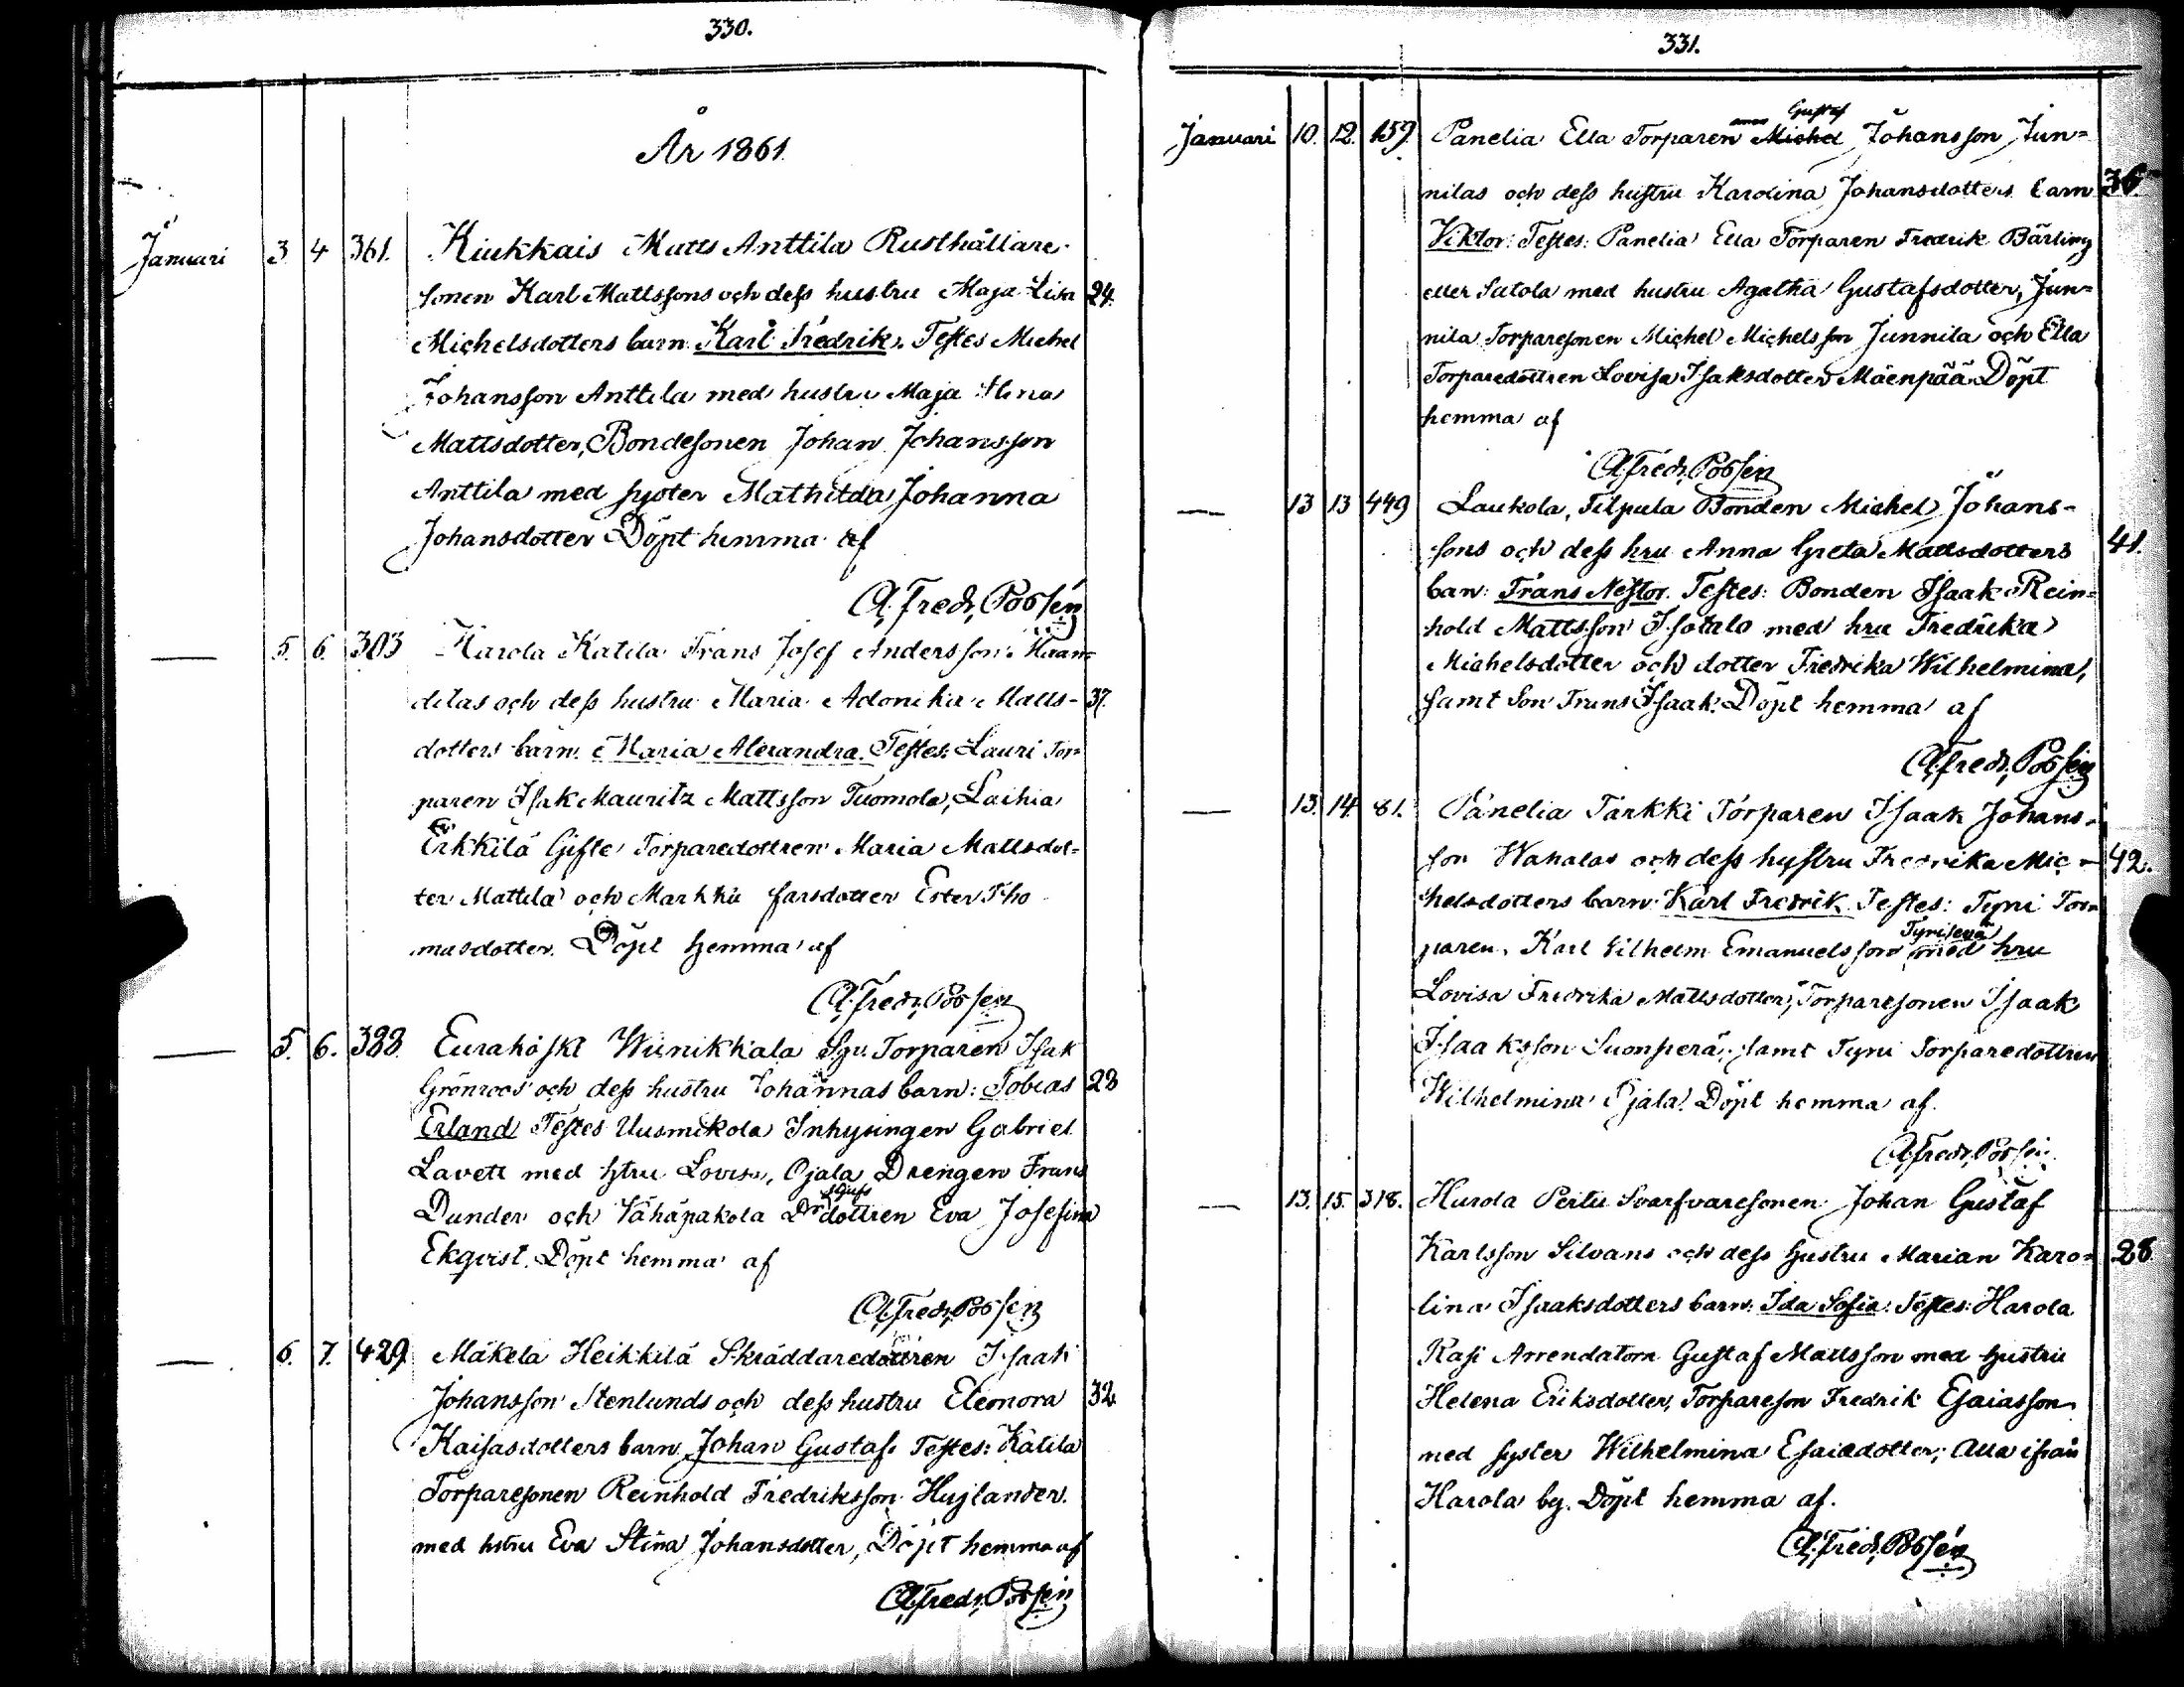 330.
År 1861.
Januari 3. 4 361. Kiukkais Matts Anttila Rusthållare
sonen Karl Mattssons och dess hustru Maja Lisa 24.
Michelsdotters barn: Karl Fredrik. Testes Michel
Johansson Anttila med hustru Maja Stina
Mattsdotter, Bondesonen Johan Johansson
Anttila med syster Mathilda Johanna
Johansdotter Döpt hemma af
A. Fredr. Possén
— 5. 6. 303 Harola Katila Frans Josef Andersson
ditas och dess hustru Maria Adonika Matts- 37.
dotters barn. Maria Alexandra. Testes: Lauri Tor-
paren Isak Mauritz Mattsson Tuomola, Laihia
Erkkilä Gifte Torparedottren Maria Mattsdot-
ter Mattila och Markku farsdotter Ester Tho
masdotter. Döpt hemma af
A. Fredr. Possén
— 5. 6. 388. Eurakoski Wiinikkala Torparen Isak
Grönroos och dess hustru Johannas barn: Tobias 28
Erland Testes Uusmikola Inhysingen Gabriel
Lavett med hstru Lovisa, Ojala Drengen Frans
Dunder och Vähäpakola dottren Eva Josefina
Ekqvist. Döpt hemma af
A. Fredr. Possén
— 6. 7. 429. Mäkelä Heikkilä Skräddaredottren Isaak
Johansson Stenlunds och dess hustru Eleonora 32.
Kaisasdotters barn Johan Gustaf. Testes: Katila
Torparesonen Reinhold Fredriksson Hujlander.
med hstru Eva Stina Johansdotter, Döpt hemma af
A. Fredr. Possén
331.
Gustaf
Januari 10. 12. 159. Panelia Ella Torparen Michel Johansson Jun-
nilas och dess hustru Karolina Johansdotters barn 36.
Viktor: Testes: Panelia Ella Torparen Fredrik Bärling
eller Satola med hustru Agatha Gustafsdotter, Jun-
nila Torparesonen Michel Michelsson Junnila och Ella
Torparedottren Lovisa Isaksdotter Mäenpää. Döpt
hemma af
A. Fredr. Possén
— 13 13 449 Laukola, Filpula Bonden Michel Johans-
sons och dess hru Anna Greta Mattsdotters 41.
barn: Frans Nestor. Testes: Bonden Isaak Rein-
hold Mattsson Isotalo med hru Fredrika
Michelsdotter och dotter Fredrika Wilhelmina,
samt Son Frans Isaak. Döpt hemma af
A. Fredr. Possén
— 13. 14. 81. Panelia Tarkki Torparen Isaak Johans-
son Wahalas och dess hustru Fredrika Mic- 42.
helsdotters barn: Karl Fredrik. Testes: Tyni Tor-
paren Karl Vilhelm Emanuelsson med hru
Lovisa Fredrika Mattsdotter, Torparesonen Isaak
Isaaksson Suonperä, samt Tyni Torparedottren
Wilhelmina Ojala. Döpt hemma af.
A. Fredr. Possén
— 13. 15. 318. Harola Perttu Svarfvaresonen Johan Gustaf
Karlsson Silvans och dess hustru Marian Karo- 28.
lina Isaaksdotters barn: Ida Sofia: Testes: Harola
Kasi Arrendatorn Gustaf Mattsson med hustru
Helena Eriksdotter, Torpareson Fredrik Esaiasson
med syster Wilhelmina Esaiædotter; Alla ifrån
Harola by. Döpt hemma af.
A. Fredr. Possén